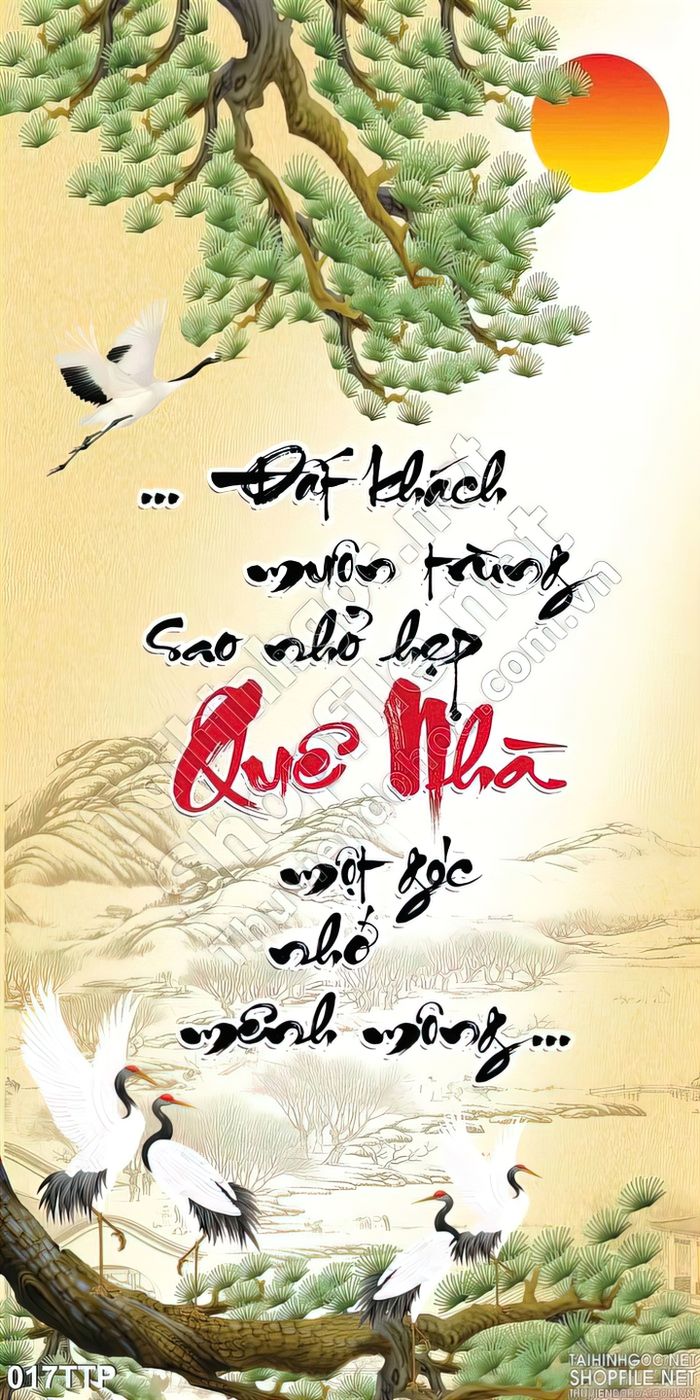 ... Đất khách
muôn trùng
Sao nhỏ hẹp
Quê Nhà
một góc
nhớ
mênh mông...
taihinhgoc.net
shopfile.net
thuviendohoa.com.vn
017TTP
TAIHINHGOC.NET
SHOPFILE.NET
THUVIENDOHOA.COM.VN